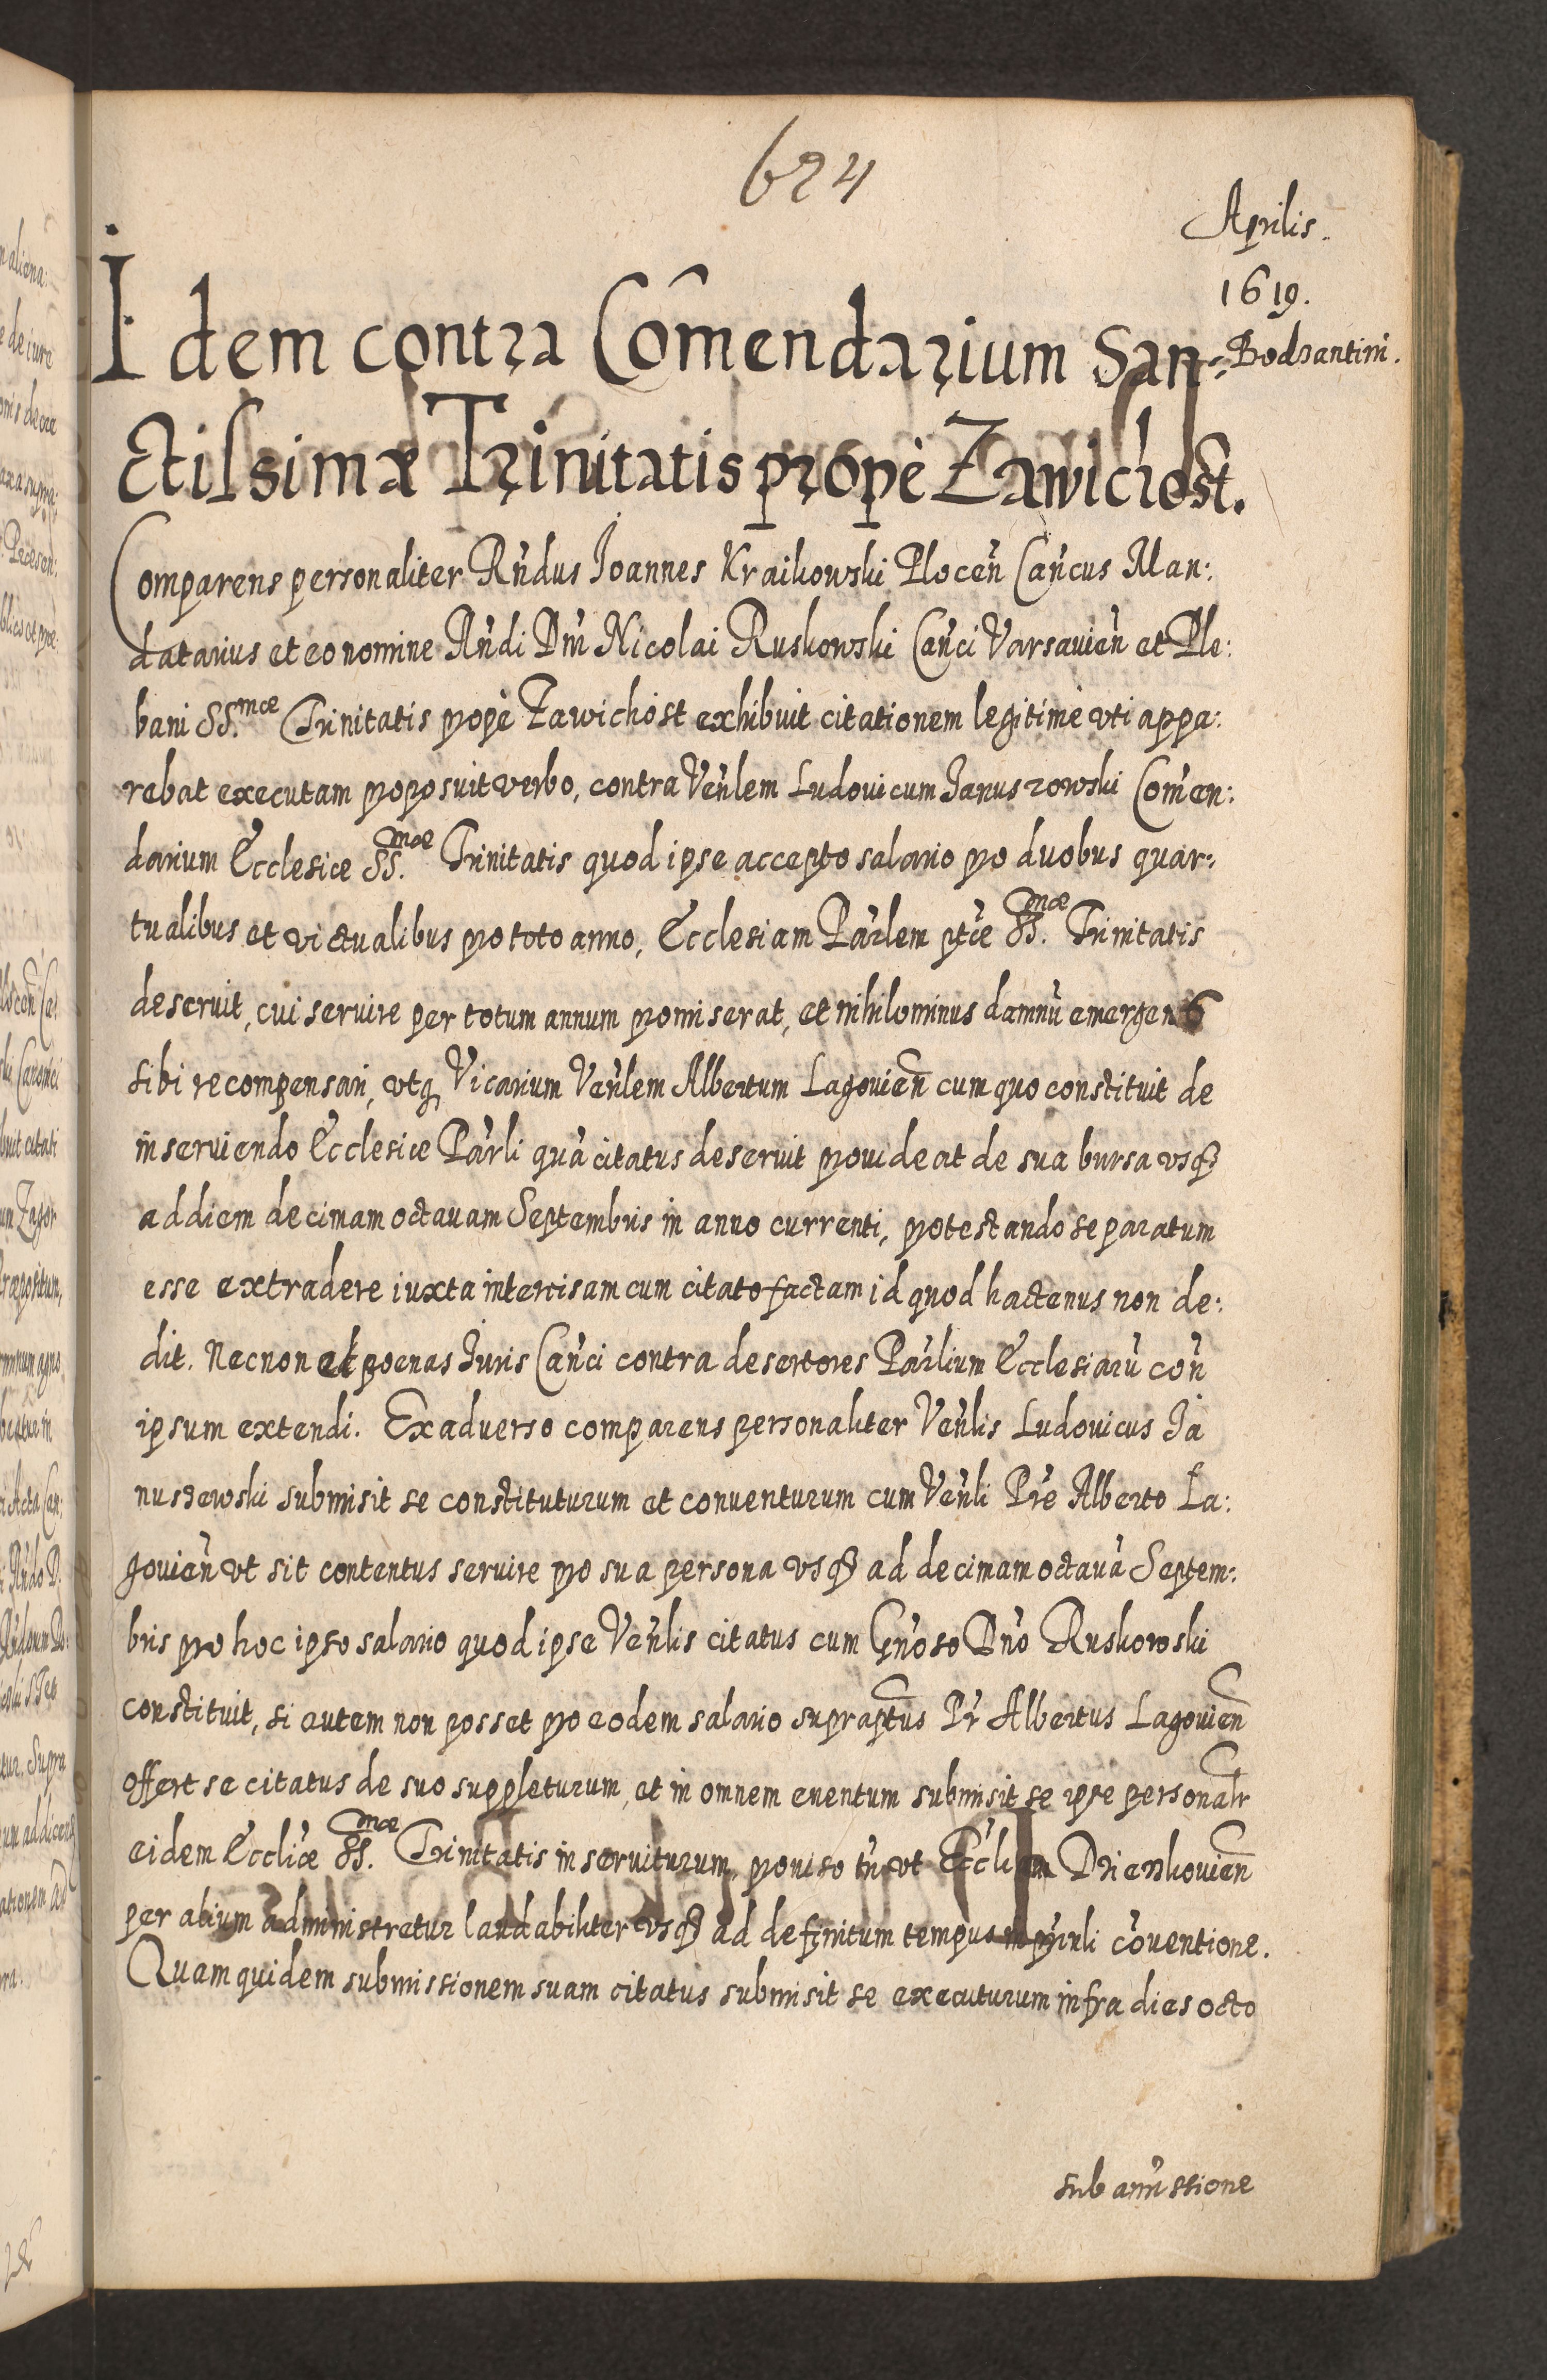 624
Aprilis.
1619.
Bodzantini.
Idem contra Comendarium San-
ctissimæ Trinitatis propè Zawichost.
Comparens personaliter Rñdus Joannes Kraikowski Plocen̄ Cañcus Man:
datarius et eo nomine Rñdi Dñi Nicolai Ruskowski Cañci Varsauien̄ et Ple:
bani SS.mæ Trinitatis propè Zawichost exhibuit citationem legitimè vti appa:
rebat executam proposuit verbo, contra Veñlem Ludouicum Januszowski Comen:
darium Ecclesiæ SS.mæ Trinitatis quod ipse accepto salario pro duobus quar:
tualibus et victualibus pro toto anno, Ecclesiam Parlem ptæ SS.mæ Trinitatis
deseruit, cui seruire per totum annum promiserat, et nihilominus damnū emergens
sibi recompensari, vtq Vicarium Veñlem Albertum Lagouien̄ cum quo constituit de
inseruiendo Ecclesiæ Parli quā citatus deseruit prouideat de sua bursa vsq
ad diem decimam octauam Septembris in anno currenti, protestando se paratum
esse extradere iuxta intercisam cum citato factam id quod hactenus non de:
dit. Necnon et poenas Juris Cañci contra desertores Parlium Ecclesiarū con̄
ipsum extendi. Ex aduerso comparens personaliter Veñlis Ludouicus Ja
nuszewski submisit se constituturum et conuenturum cum Veñli Pre Alberto La:
gouien̄ vt sit contentus seruire pro sua persona vsq ad decimam octauā Septem:
bris pro hoc ipso salario quod ipse Veñlis citatus cum Gñoso Dño Ruskowski
constituit, si autem non posset pro eodem salario supraptus Pr Albertus Lagouien̄
offert se citatus de suo suppleturum, et in omnem euentum submisit se ipse personalr
eidem Eccliæ SS.mæ Trinitatis inseruiturum, prouiso tñ vt Dzienkouien̄
per alium administretur laudabiliter vsq ad definitum tempus in couentione.
Quam quidem submissionem suam citatus submisit se executurum infra dies octo
sub amissione